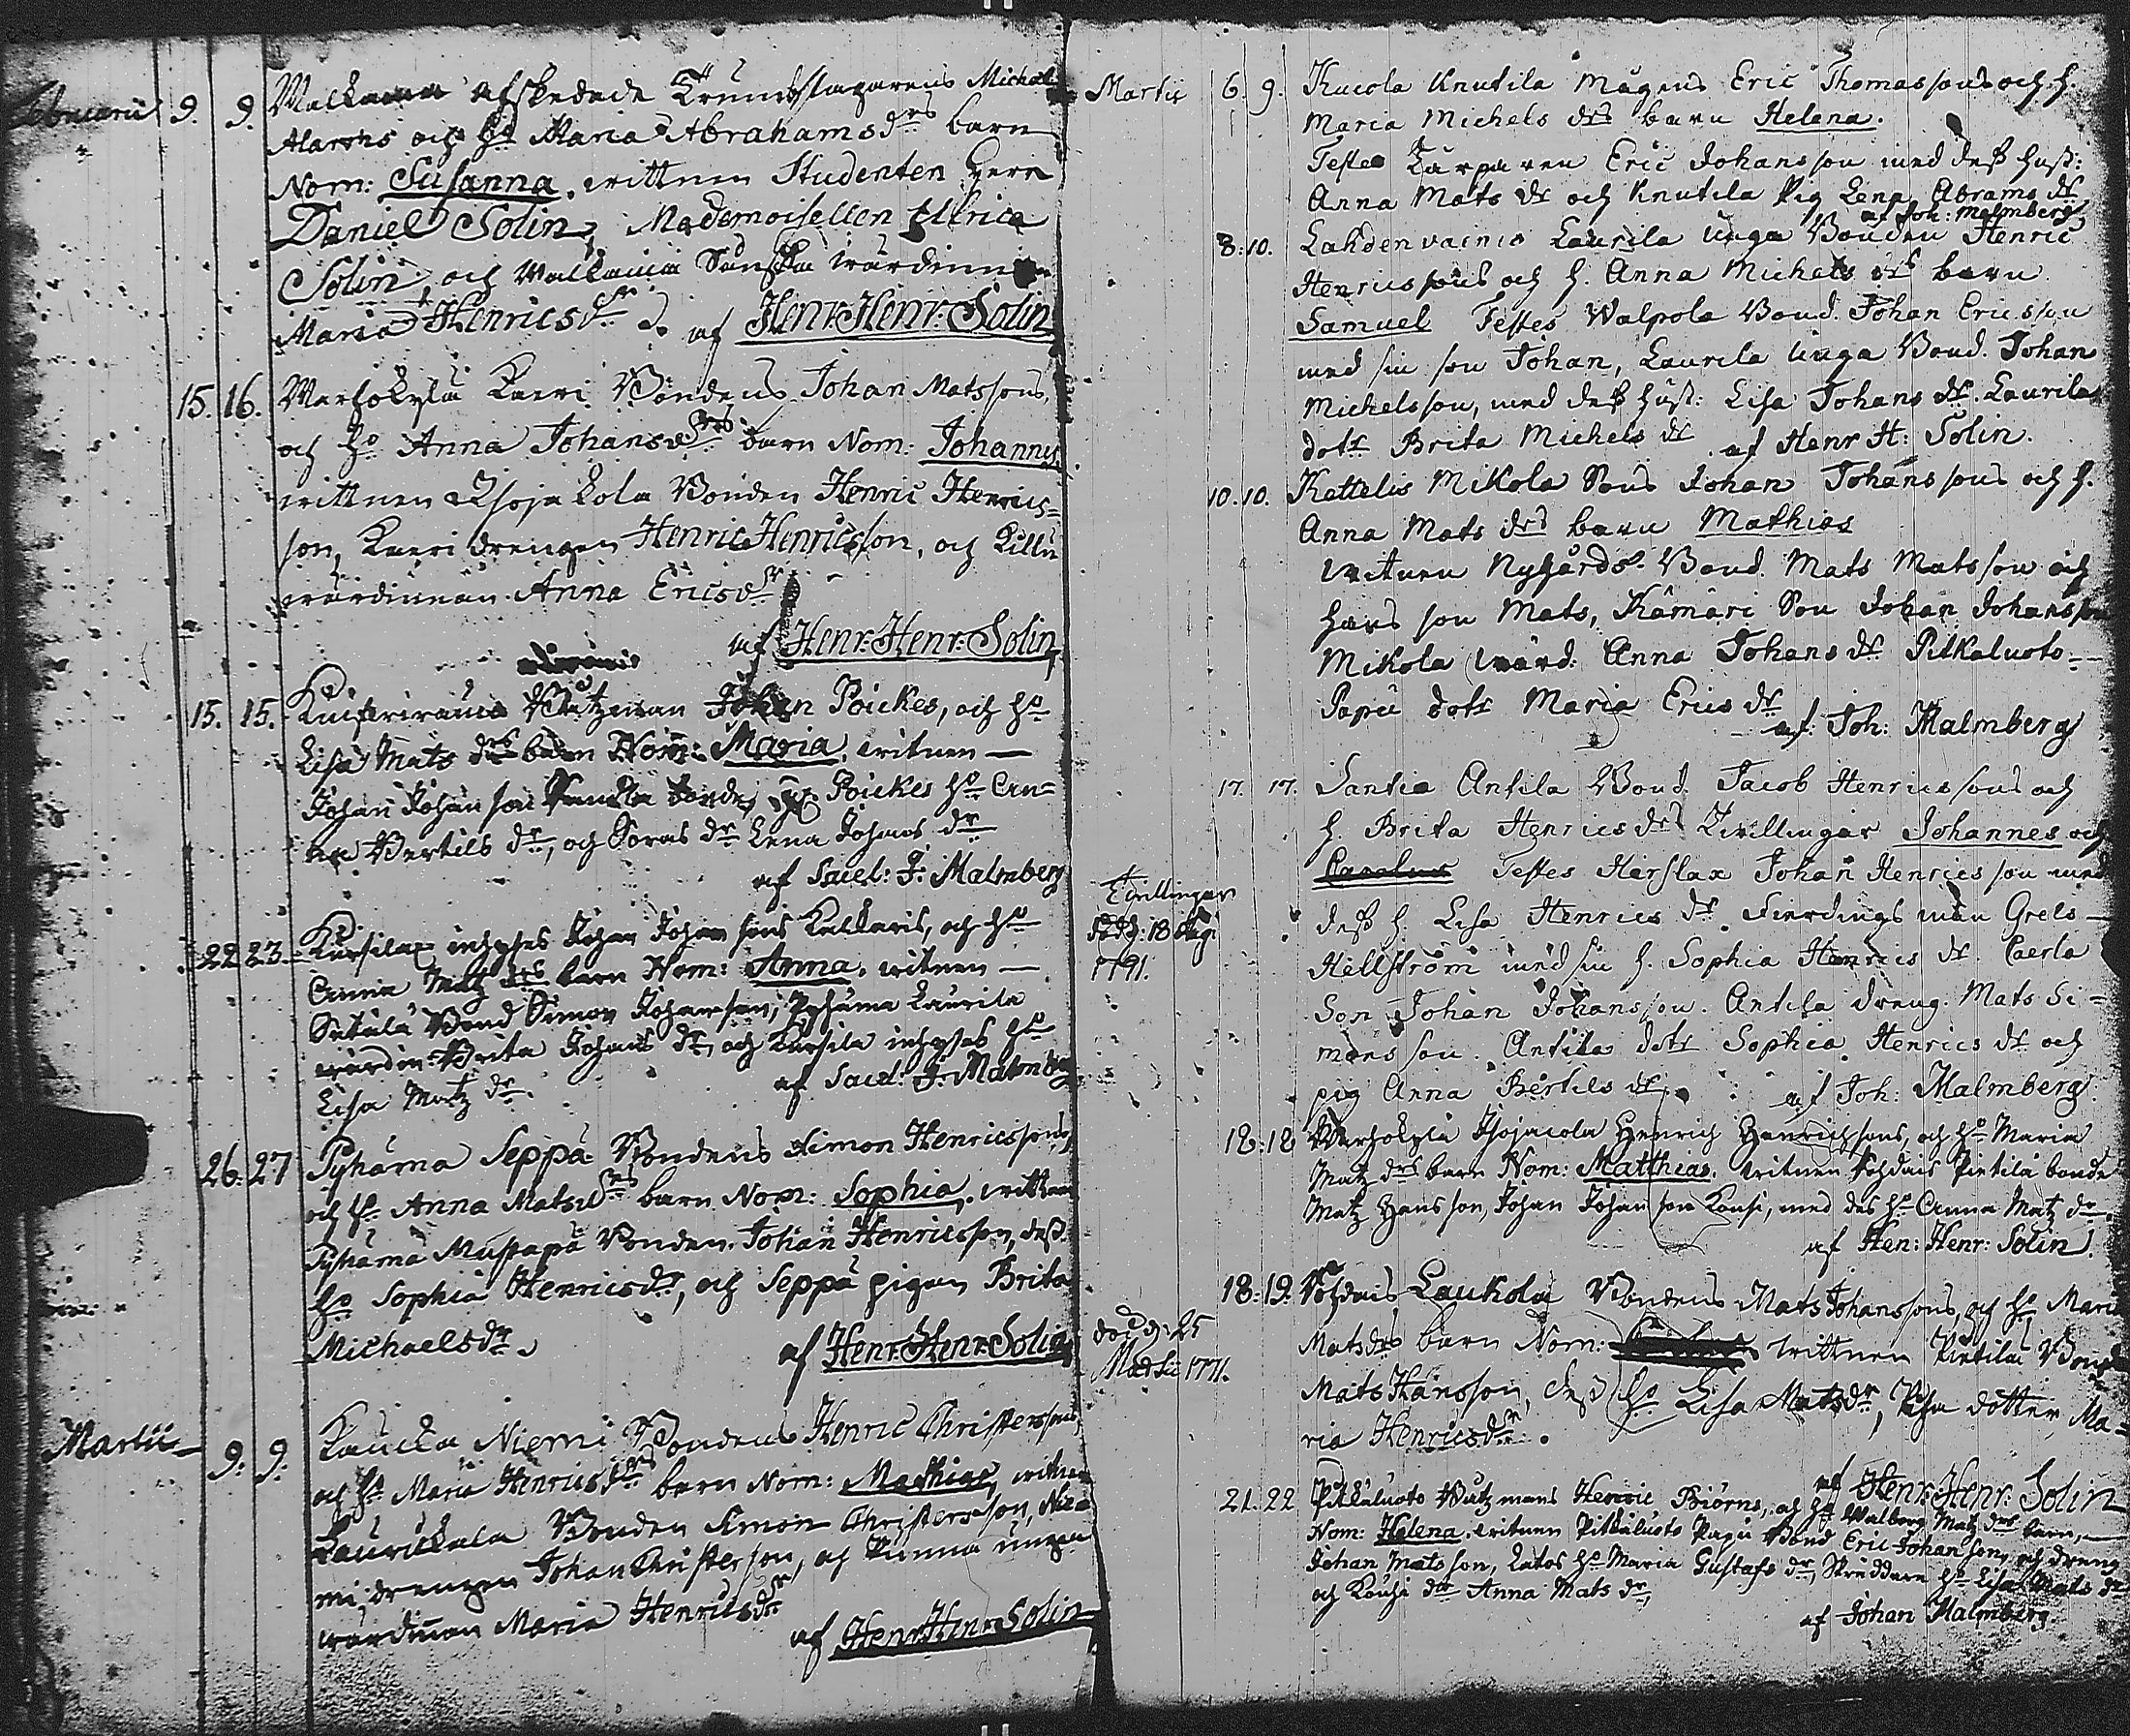 Februarii 9. 9. afskedade Trumslagarens Michel
Alarens och h:o Maria Abrahams d:rs barn
Nom: Susanna. wittnen Studenten Herr
Daniel Solin, Mademoisellen Ulrica
Solin, och Wallkama wärdinnan
Maria Henricsd:r af Henr: Henr: Solin
15. 16. Warhokylä Kaeri Bondens Johan Matssons,
och h:o Anna Johansd:rs barn Nom: Johannes
wittnen Isojakola Bonden Henric Henrics=
son, Kaeri drengen Henric Henricsson, och
wärdinnan Anna Ericsd:r
af Henr: Henr: Solin
15. 15. Båtzman Johan Poickes, och h:o
Lisa Mats d:rs barn Nom: Maria. witnen —
Johan Johansson Poickes h:o An=
na Bertils d:r, och Soras d:r Lena Johans d:r
af Sacel: J: Malmberg
22 23 Kursila inhyses Johan Johansons Kalkaris, och h:o
Anna Matz d:rs barn Nom: Anna. witnen —
Sutala Bond Simon Johansson, Pyhäma Laurila
wärdin: Brita Johans d:r, och Kursila inhyses h:o
Lisa Matz d:r. af Sacel: J: Malmberg
26. 27 Pyhäma Seppä Bondens Simon Henricssons,
och h:o Anna Matsd:rs barn Nom: Sophia. wittnen
Pyhäma Mustapä Bonden Johan Henricsson, dess
h:o Sophia Henricsd:r, och Seppä pigan Brita
Michaelsd:r. af Henr: Henr: Solin
Martii 9. 9. Kaucka Niemi Bondens Henric Christerssons
och h:o Maria Henricsd:rs barn Nom: Mathias, witnen
Laurickala Bonden Simon Christersson, Nie=
mi drengen Johan Christersson, och unga
wärdinnan Maria Henricsd:r
af Henr: Henr: Solin
Martii 6. 9. Kucola Knutila Mågens Eric Thomassons och h.
Maria Michels d:rs barn Helena.
Testes Karparen Eric Johansson med dess hust:
Anna Mats d:r och Knutila Pig Lena Abrams d:r
af Joh: Malmberg
8. 10. Lahdenvainio Laurila unga Bonden Henric
Henricssons och h. Anna Michels d:rs barn
Samuel Testes Walpola Bond. Johan Ericsson
med sin son Johan, Laurila unga Bond. Johan
Michelsson, med dess hust: Lisa Johans d:r. Laurilas
dotr Brita Michels d:r af Henr H: Solin.
10. 10. Kattelis Mikola Sons Johan Johanssons och h.
Anna Mats d:rs barn Mathias
Witnen Nygårds Bond. Mats Matsson och
hans son Mats, Kämäri Son Johan Johansson
Mikola wärd: Anna Johans d:r Pitkaluoto=
Papu dotr Maria Erics d:r
af: Joh: Malmberg
17. 17. Santio Antila Bond. Jacob Henricssons och
h. Brita Henrics d:rs Twillingar Johannes och
Carolus Testes Härslax Johan Henricsson med
dess h. Lisa Henrics d:r. Fierdings man Grels —
Hellström med sin h. Sophia Henrics d:r. Caerla
Son Johan Johansson. Antila dreng. Mats Si=
mons son. Antila dotr Sophia Henrics d:r och
pig Anna Bertils d:r. af Joh: Malmberg
Twillingar
död d: 18 Aug:
1791.
18. 18 Warhokylä Isojacola Henrich Henrichssons, och h:o Maria
Matz d:rs barn Nom: Matthias. witnen Wohdais Pietilä bonde
Matz Hansson, Johan Johansson Kausi, med des h:o Anna Matz d:r.
af Hen: Henr: Solin.
18. 19. Wohdais Laukola Bondens Mats Johanssons, och h:o Maria
Matsd:rs barn Nom: wittnen Pietilä Bonden
Mats Hansson, dess h:o Lisa Matsd:r, dotter Ma=
ria Henricsd:r.
af Henr: Henr: Solin
död d: 25
Martii 1771.
21. 22 Pitkäluoto Båtzmans Henric Biörns, och h:o Walborg Matz d:rs barn,
Nom: Helena. witnen Pitkäluoto Papu Bond Eric Johansson, och dreng
Johan Matsson, Latos h:o Maria Gustafs d:r, Skräddare h:o Lisa Mats d:r
och Kausi d:r Anna Mats d:r,
af Johan Malmberg.